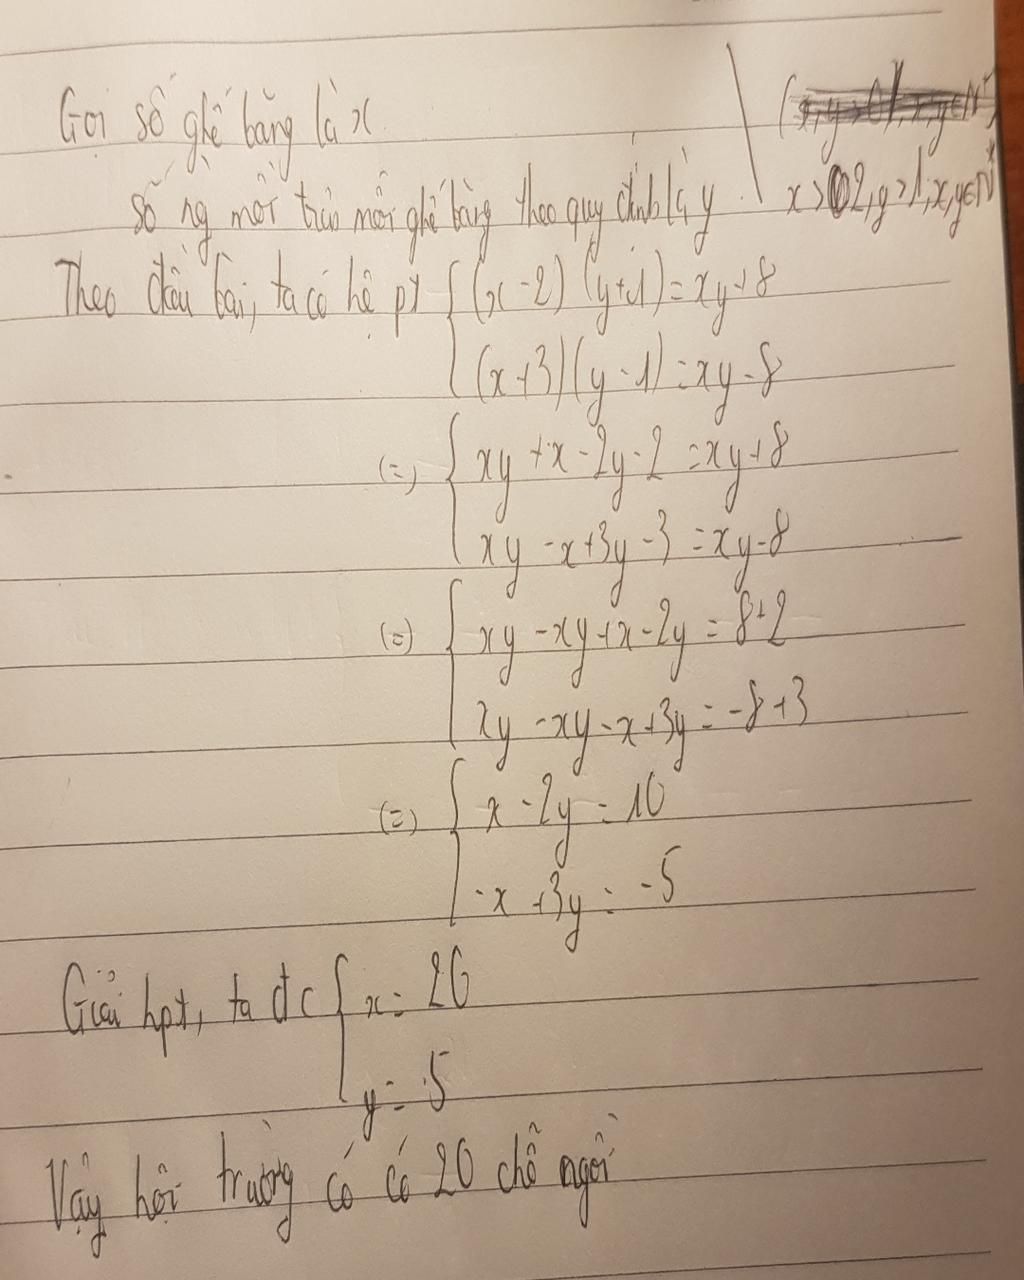 Gọi số ghế băng là x
số ng mỗi trên mỗi ghế băng theo quy định là y
x>2, y>1; x,y∈N*
Theo đầu bài, ta có hệ pt { (x-2)(y+1)=xy+8
(x+3)(y-1)=xy-8
(=) { xy+x-2y-2=xy+8
xy-x+3y-3=xy-8
(=) { xy-xy+x-2y=8+2
xy-xy-x+3y=-8+3
(=) { x-2y=10
-x+3y=-5
Giải hpt, ta đc { x=20
y=5
Vậy hội trường có có 20 chỗ ngồi